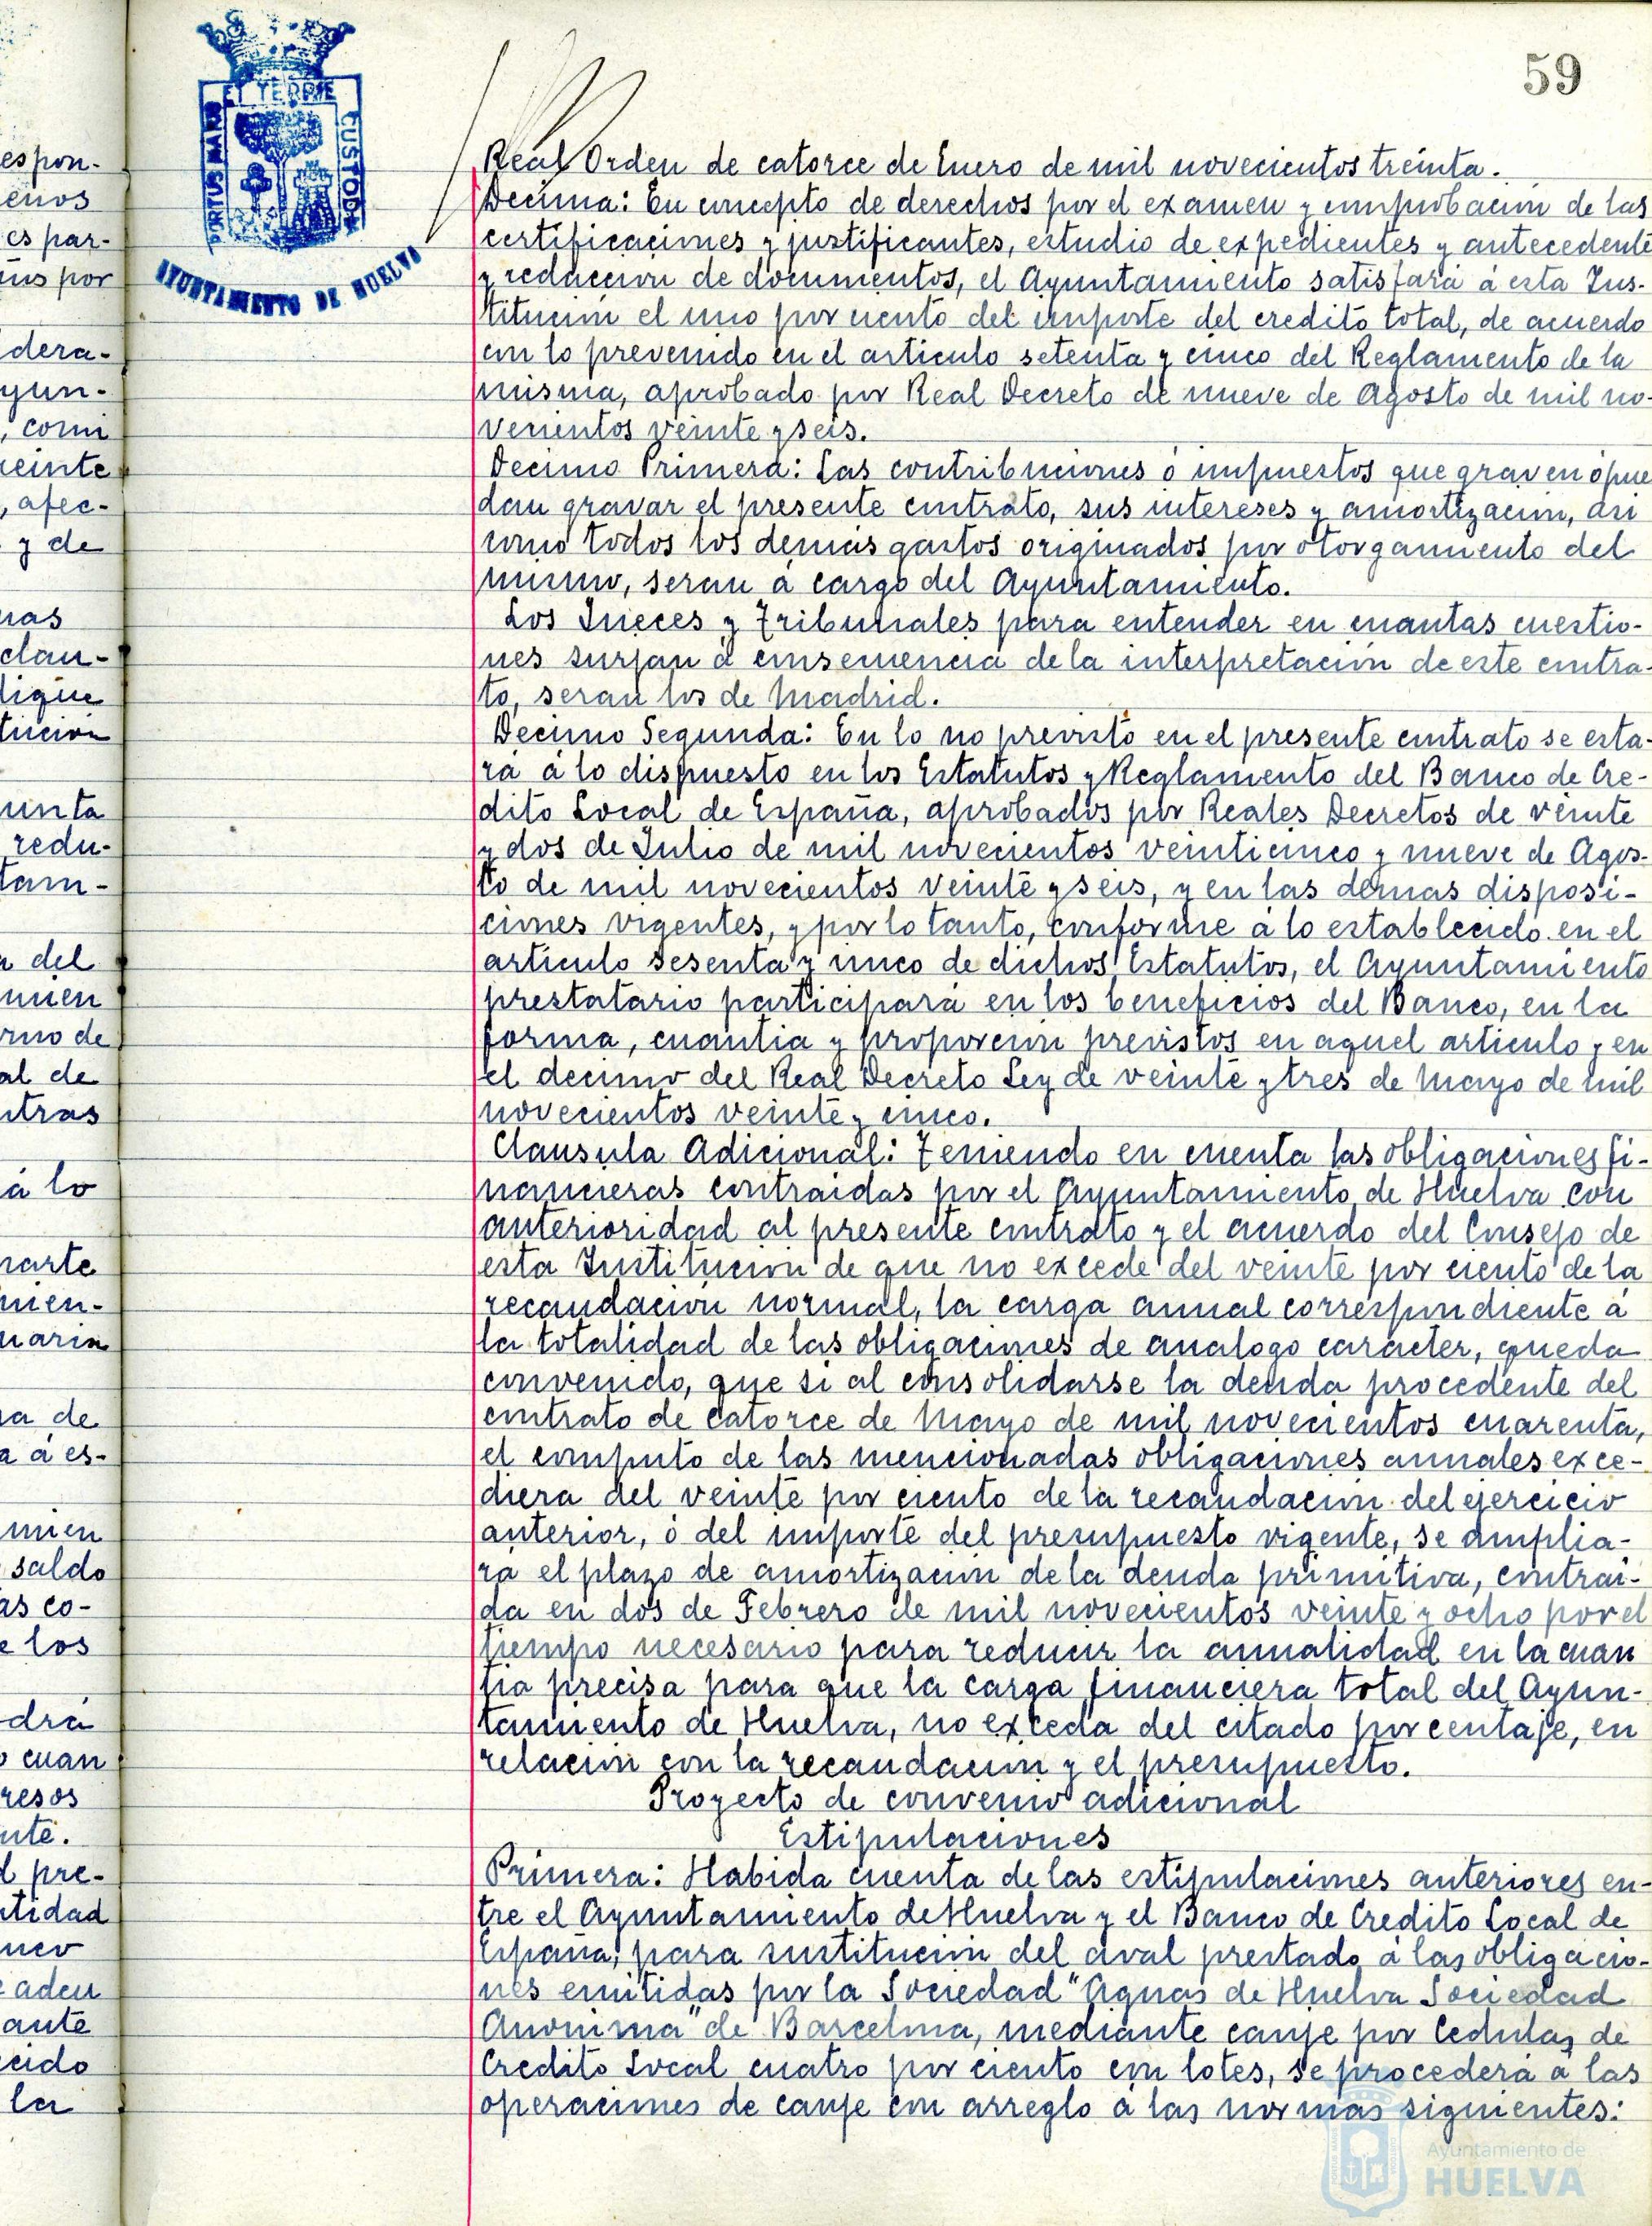 59
PORTUS MARIS
ET TERRE
CUSTODIA
AYUNTAMIENTO DE HUELVA
Real Orden de catorce de Enero de mil novecientos treinta.
Decima: En concepto de derechos por el examen y comprobacion de las
certificaciones y justificantes, estudio de expedientes y antecedente
y redaccion de documentos, el Ayuntamiento satisfará á esta Ins-
titucion el uno por ciento del importe del credito total, de acuerdo
con lo prevenido en el articulo setenta y cinco del Reglamento de la
misma, aprobado por Real Decreto de nueve de Agosto de mil no-
vecientos veinte y seis.
Decimo Primera: Las contribuciones ó impuestos que graven ó pue
dan gravar el presente contrato, sus intereses y amortizacion, asi
como todos los demás gastos originados por otorgamiento del
mismo, seran á cargo del Ayuntamiento.
Los Jueces y Tribunales para entender en cuantas cuestio-
nes surjan á consecuencia de la interpretacion de este contra-
to, seran los de Madrid.
Decimo Segunda: En lo no previsto en el presente contrato se esta-
rá á lo dispuesto en los Estatutos y Reglamento del Banco de Cre-
dito Local de España, aprobados por Reales Decretos de veinte
y dos de Julio de mil novecientos veinticinco y nueve de Agos-
to de mil novecientos veinte y seis, y en las demas disposi-
ciones vigentes, y por lo tanto, conforme á lo establecido en el
articulo sesenta y cinco de dichos Estatutos, el Ayuntamiento
prestatario participará en los beneficios del Banco, en la
forma, cuantia y proporcion previstos en aquel articulo y en
el decimo del Real Decreto Ley de veinte y tres de Mayo de mil
novecientos veinte y cinco.
Clausula Adicional: Teniendo en cuenta las obligaciones fi-
nancieras contraidas por el Ayuntamiento de Huelva con
anterioridad al presente contrato y el acuerdo del Consejo de
esta Institucion de que no excede del veinte por ciento de la
recaudacion normal, la carga anual correspondiente á
la totalidad de las obligaciones de analogo caracter, queda
convenido, que si al consolidarse la deuda procedente del
contrato de catorce de Mayo de mil novecientos cuarenta,
el computo de las mencionadas obligaciones anuales exce-
diera del veinte por ciento de la recaudacion del ejercicio
anterior, ó del importe del presupuesto vigente, se amplia-
rá el plazo de amortizacion de la deuda primitiva, contrai-
da en dos de Febrero de mil novecientos veinte y ocho por el
tiempo necesario para reducir la anualidad en la cuan
tia precisa para que la carga financiera total del Ayun-
tamiento de Huelva, no exceda del citado porcentaje, en
relacion con la recaudacion y el presupuesto.
Proyecto de convenio adicional
Estipulaciones
Primera: Habida cuenta de las estipulaciones anteriores en-
tre el Ayuntamiento de Huelva y el Banco de Credito Local de
España, para sustitucion del aval prestado á las obligacio-
nes emitidas por la Sociedad "Aguas de Huelva Sociedad
Anonima" de Barcelona, mediante canje por Cedulas de
Credito Local cuatro por ciento con lotes, se procederá á las
operaciones de canje con arreglo á las normas siguientes:
Ayuntamiento de
HUELVA